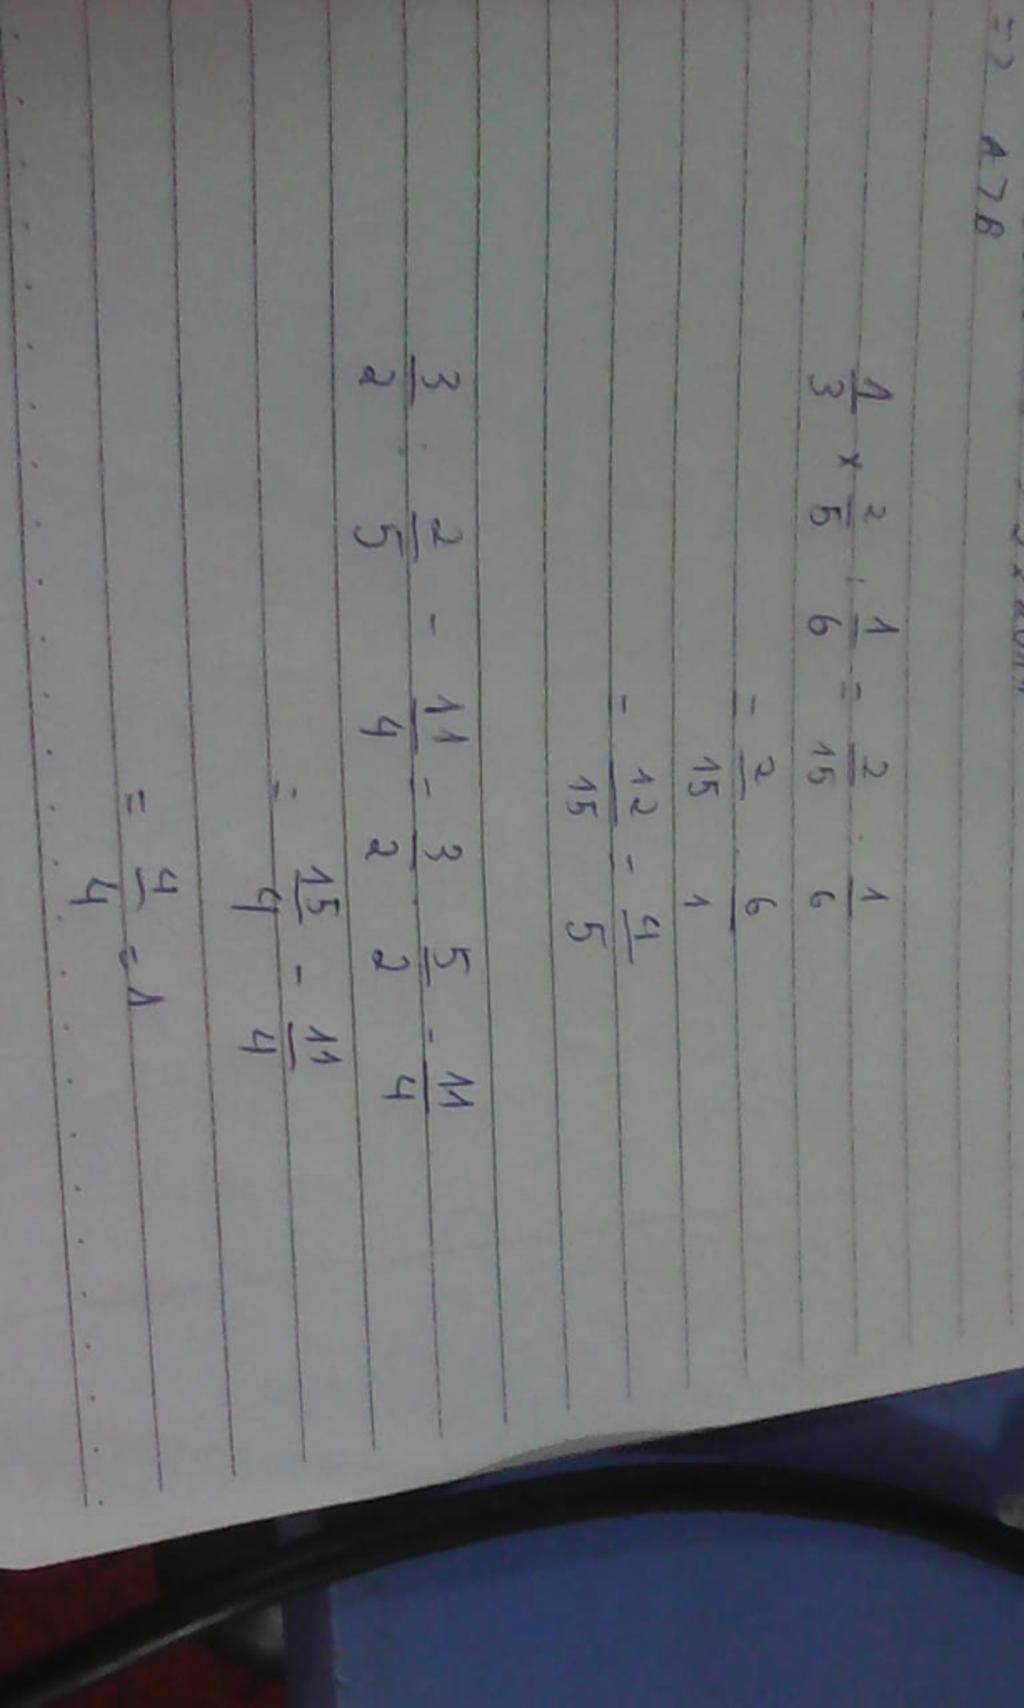 => A > B
1/3 × 2/5 : 1/6 = 2/15 : 1/6
= 2/15 . 6/1
= 12/15 = 4/5
3/2 : 2/5 - 11/4 = 3/2 . 5/2 - 11/4
= 15/4 - 11/4
= 4/4 = 1